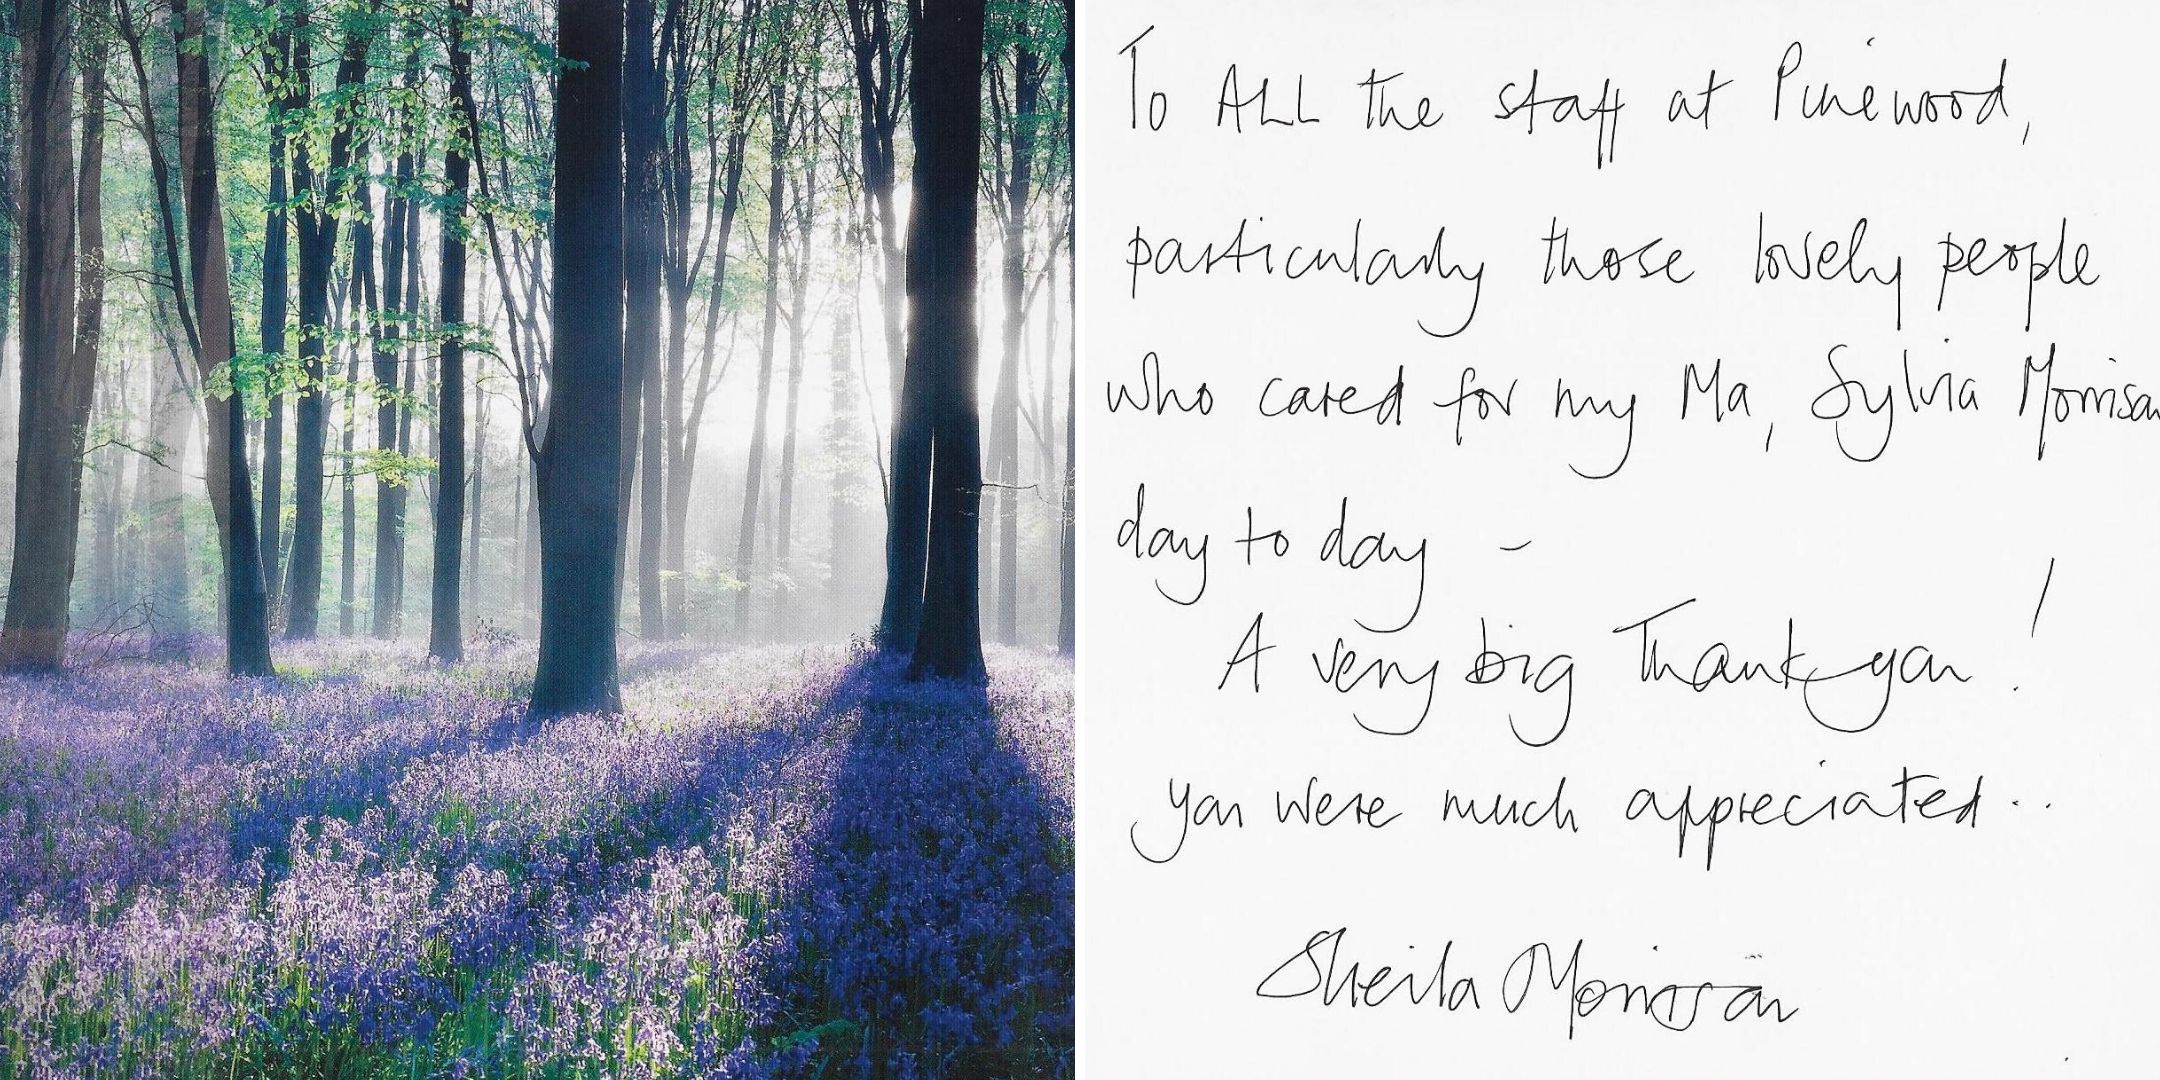 To ALL the staff at Pinewood,
particularly those lovely people
who cared for my Ma, Sylvia Morrison
day to day -
A very big Thank you!
you were much appreciated..
Sheila Morrison